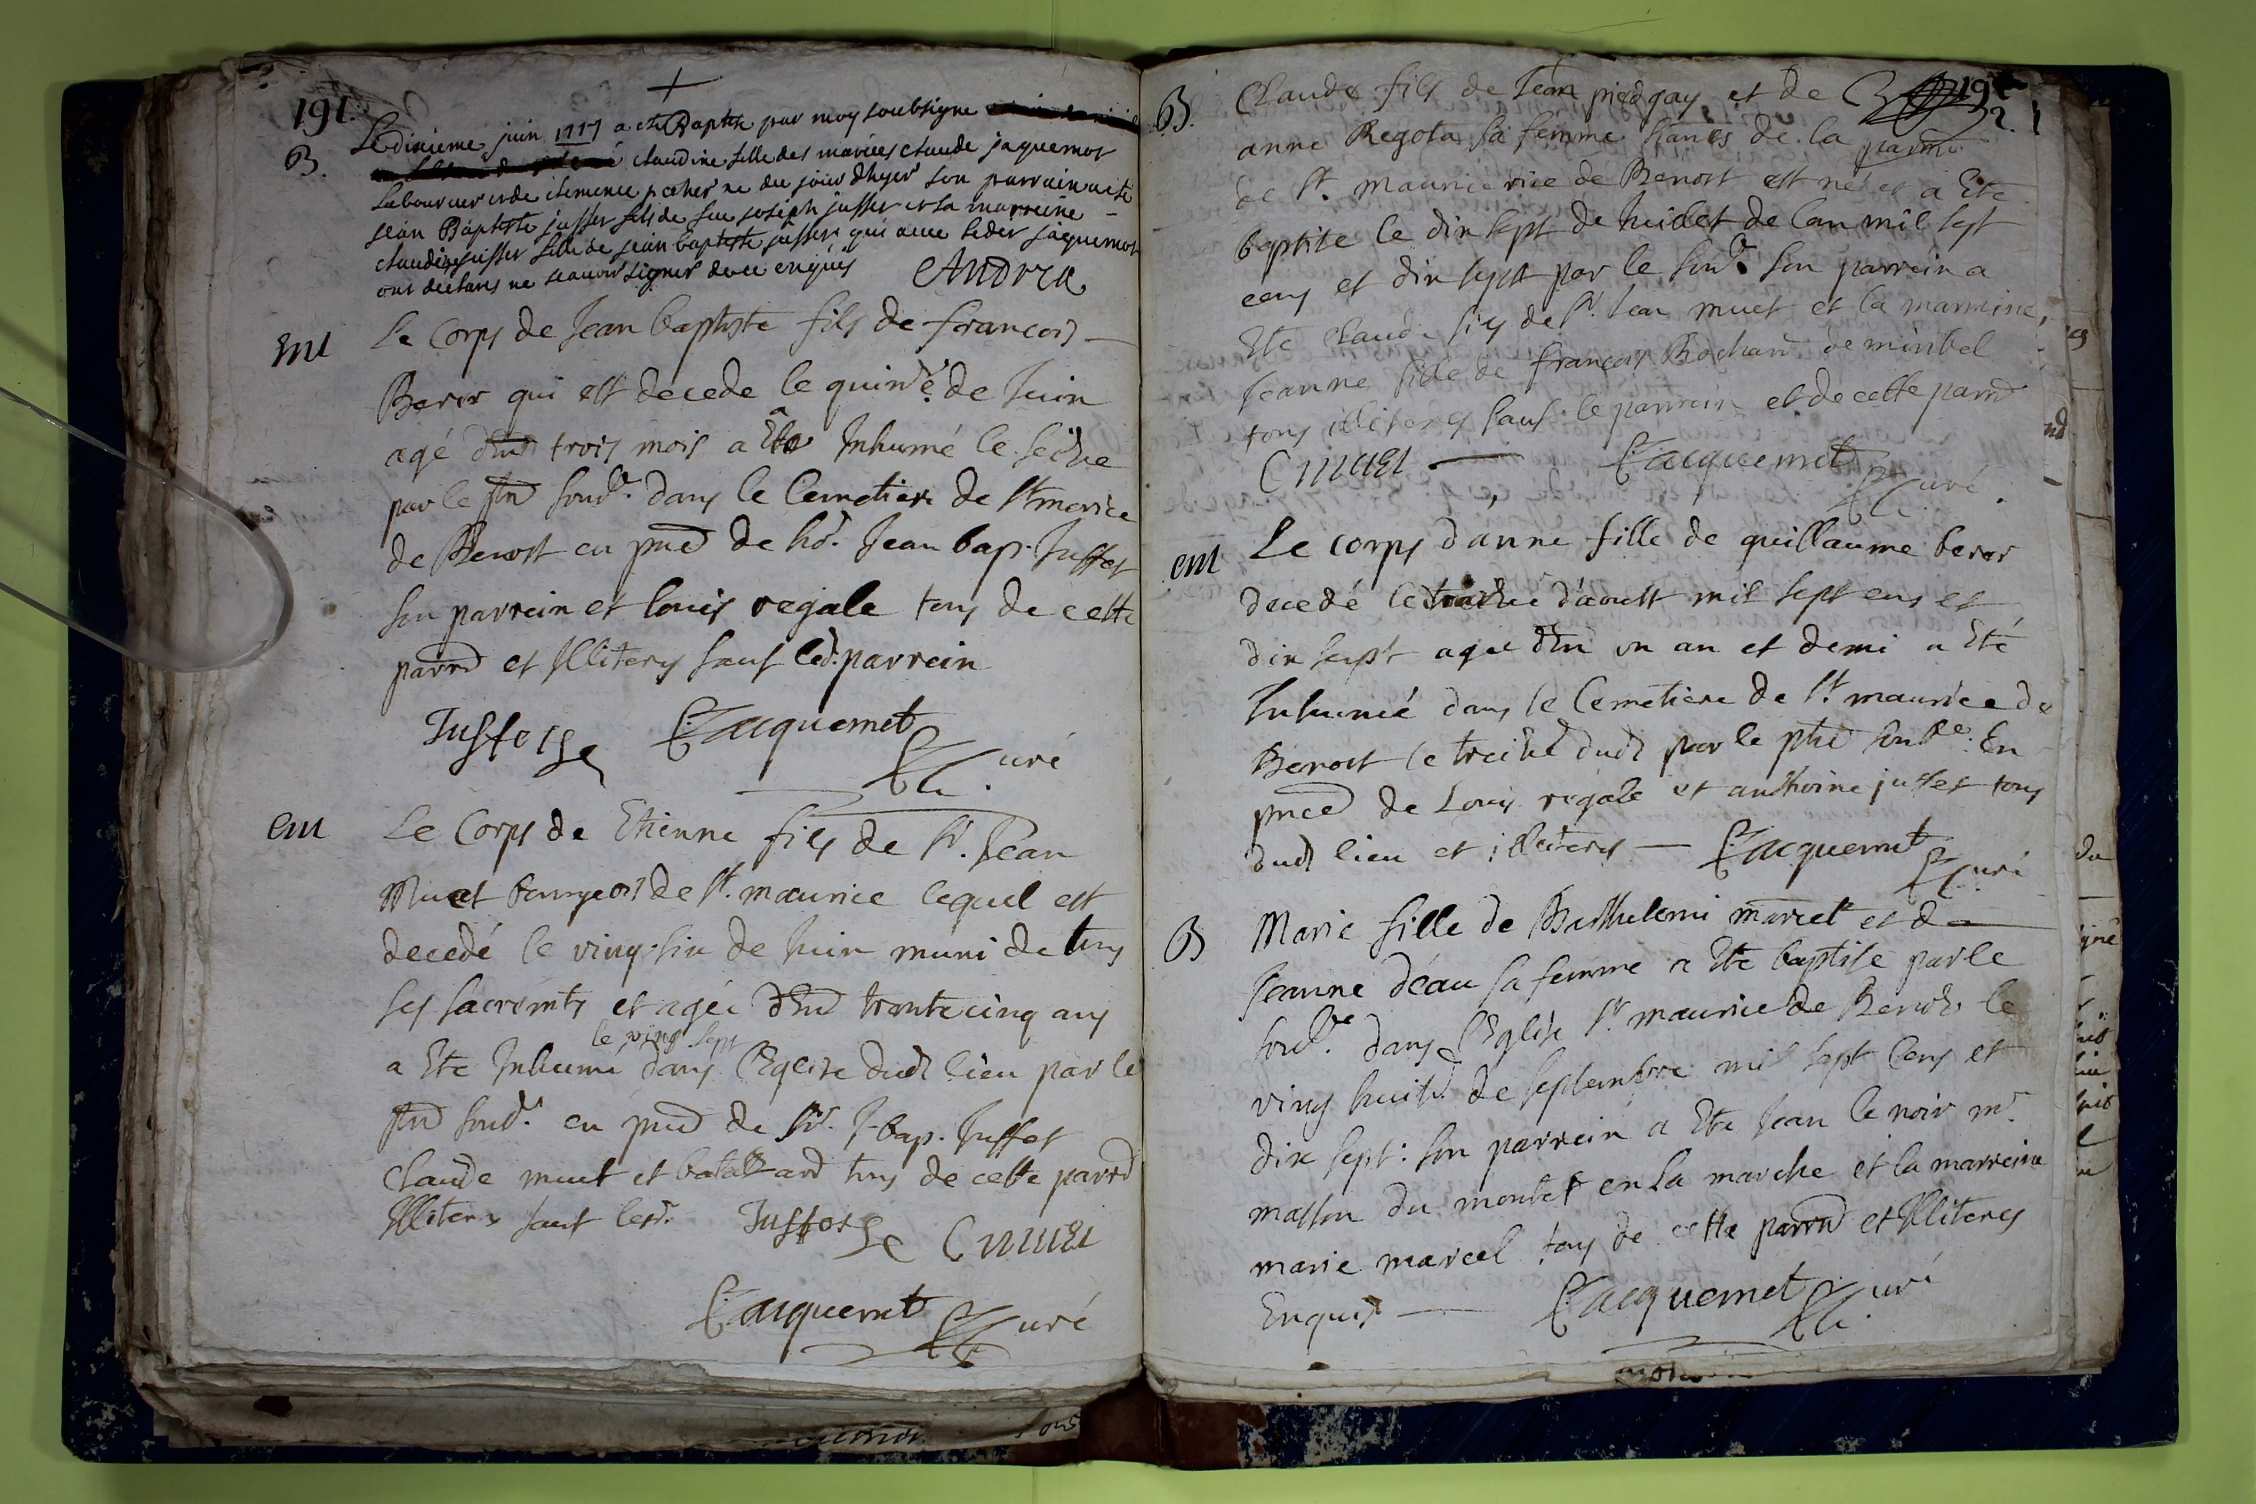 191.
B.
Le dixieme juin 1717 a eté Baptisé par moy soubsigné
claudine fille des mariées claude jaquemot
laboureur et de clemence pecher née du jour dhyer son parrain a eté
jean Baptiste jusset fils de feu joseph jusset et sa marreine
claudine jusset fille de jean baptiste jusset qui avec ledet jaquemot
ont declarés ne scavoir signer de ce enquis
Andrea
Ent
Le Corps de Jean baptiste fils de francois
Berer qui est decede le quinze de Juin
agé dEnd trois mois a Ete Inhumé le seize
par le ptre soub. dans le Cemetiere de St merice
de Benost en pnce de hd. Jean bap. Jusset
son parrein et louis regale tous de cette
parre et Illiteres sauf led. parrein
Jusset Jacquemet
Curé
Ent
Le Corps de Etienne fils de Sr. Jean
Muet bourgeois de St. maurice lequel est
decedé le ving-six de Juin muni de tous
ses sacremts et agée dEnd trente cinq ans
le ving sept
a Ete Inhumé dans l'Eglise dud lieu par le
ptre soub. en pnce de Sr. J-bap. Jusset
Claude muet et batallard tous de cette parre
Illiteres sauf lesd. Jusset C muet
Jacquemet Curé
192.
B.
Claude fils de Jean piedgay et de
anne Regota sa femme hants de la parre
de St. maurice rice de Benost est né et a Ete
baptise le dix sept de Juillet de lan mil sept
cens et dix sept par le soub. son parrein a
Ete Claude fils de Sr. Jean muet et la marreine
Jeanne fille de francois Rochard de miribel
tous illiteres sauf le parrein et de cette parre
C muet Jacquemet
Curé.
Ent
Le corps d'anne fille de guillaume berer
decedé le d'aoust mil sept cens et
dix sept agée dEn un an et demi a Eté
Inhumé dans le Cemetiere de St. maurice de
Benost le treize dud par le ptre soub. En
pnce de Louis regale et anthoine jusset tous
dud lieu et illiteres — Jacquemet
Curé
B
Marie fille de Barthelemi marcel et de
Jeanne déau sa femme a Ete baptise par le
soub. dans l'Eglise St maurice de Benost le
ving huit de septembre mil sept Cens et
dix sept: son parrein a Ete Jean le noir mr.
masson du montet en la marche et la marreine
marie marcel tous de cette parre et Illiteres
Enquis — Jacquemet Curé